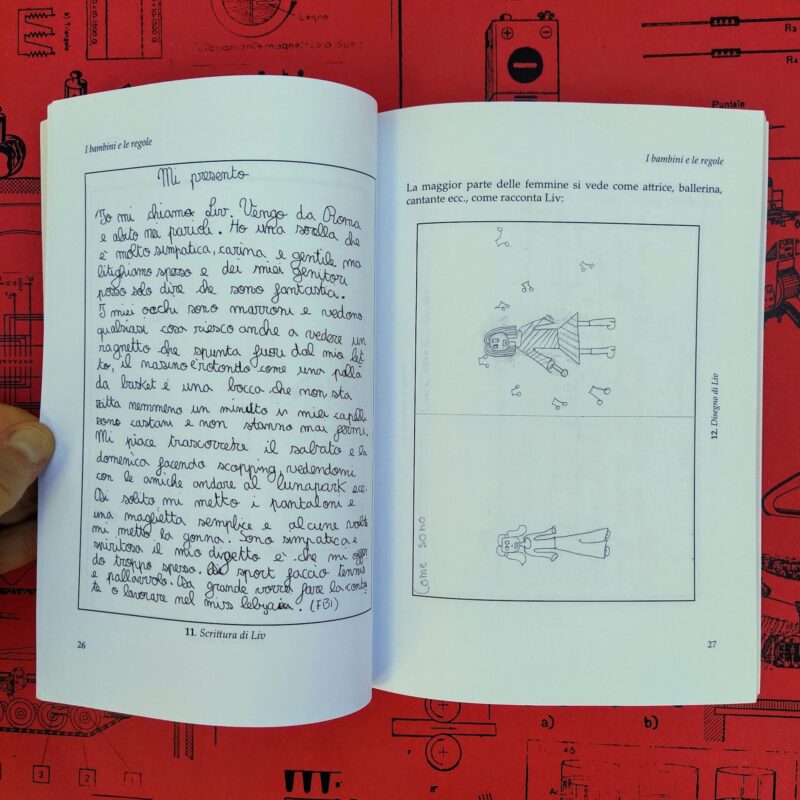 a) Triangolo
Legno
R₂
R₄
Puntale
I bambini e le regole
Mi presento
Io mi chiamo Liv. Vengo da Roma
e abito nei parioli. Ho una sorella che
è molto simpatica, carina e gentile, ma
litighiamo spesso e dei miei genitori
posso solo dire che sono fantastici.
I miei occhi sono marroni e vedono
qualsiasi cosa riesco anche a vedere un
ragnetto che spunta fuori dal mio let-
to, il nasino rotondo come una palla
da basket e una bocca che non sta
zitta nemmeno un minuto i miei capelli
sono castani e non stanno mai fermi.
Mi piace trascorrere il sabato e la
domenica facendo scopping, vedendomi
con le amiche andare al lunapark ecc.
Di solito mi metto i pantaloni e
una maglietta semplice e alcune volte
mi metto la gonna. Sono simpatica e
spiritosa il mio difetto è che mi offen
do troppo spesso. Di sport faccio tennis
e pallavvolo. Da grande vorrei fare la canta
te o lavorare nel (FBI)
11. Scrittura di Liv
26
I bambini e le regole
La maggior parte delle femmine si vede come attrice, ballerina,
cantante ecc., come racconta Liv:
Come sono
12. Disegno di Liv
27
a)
b)
3
1
2